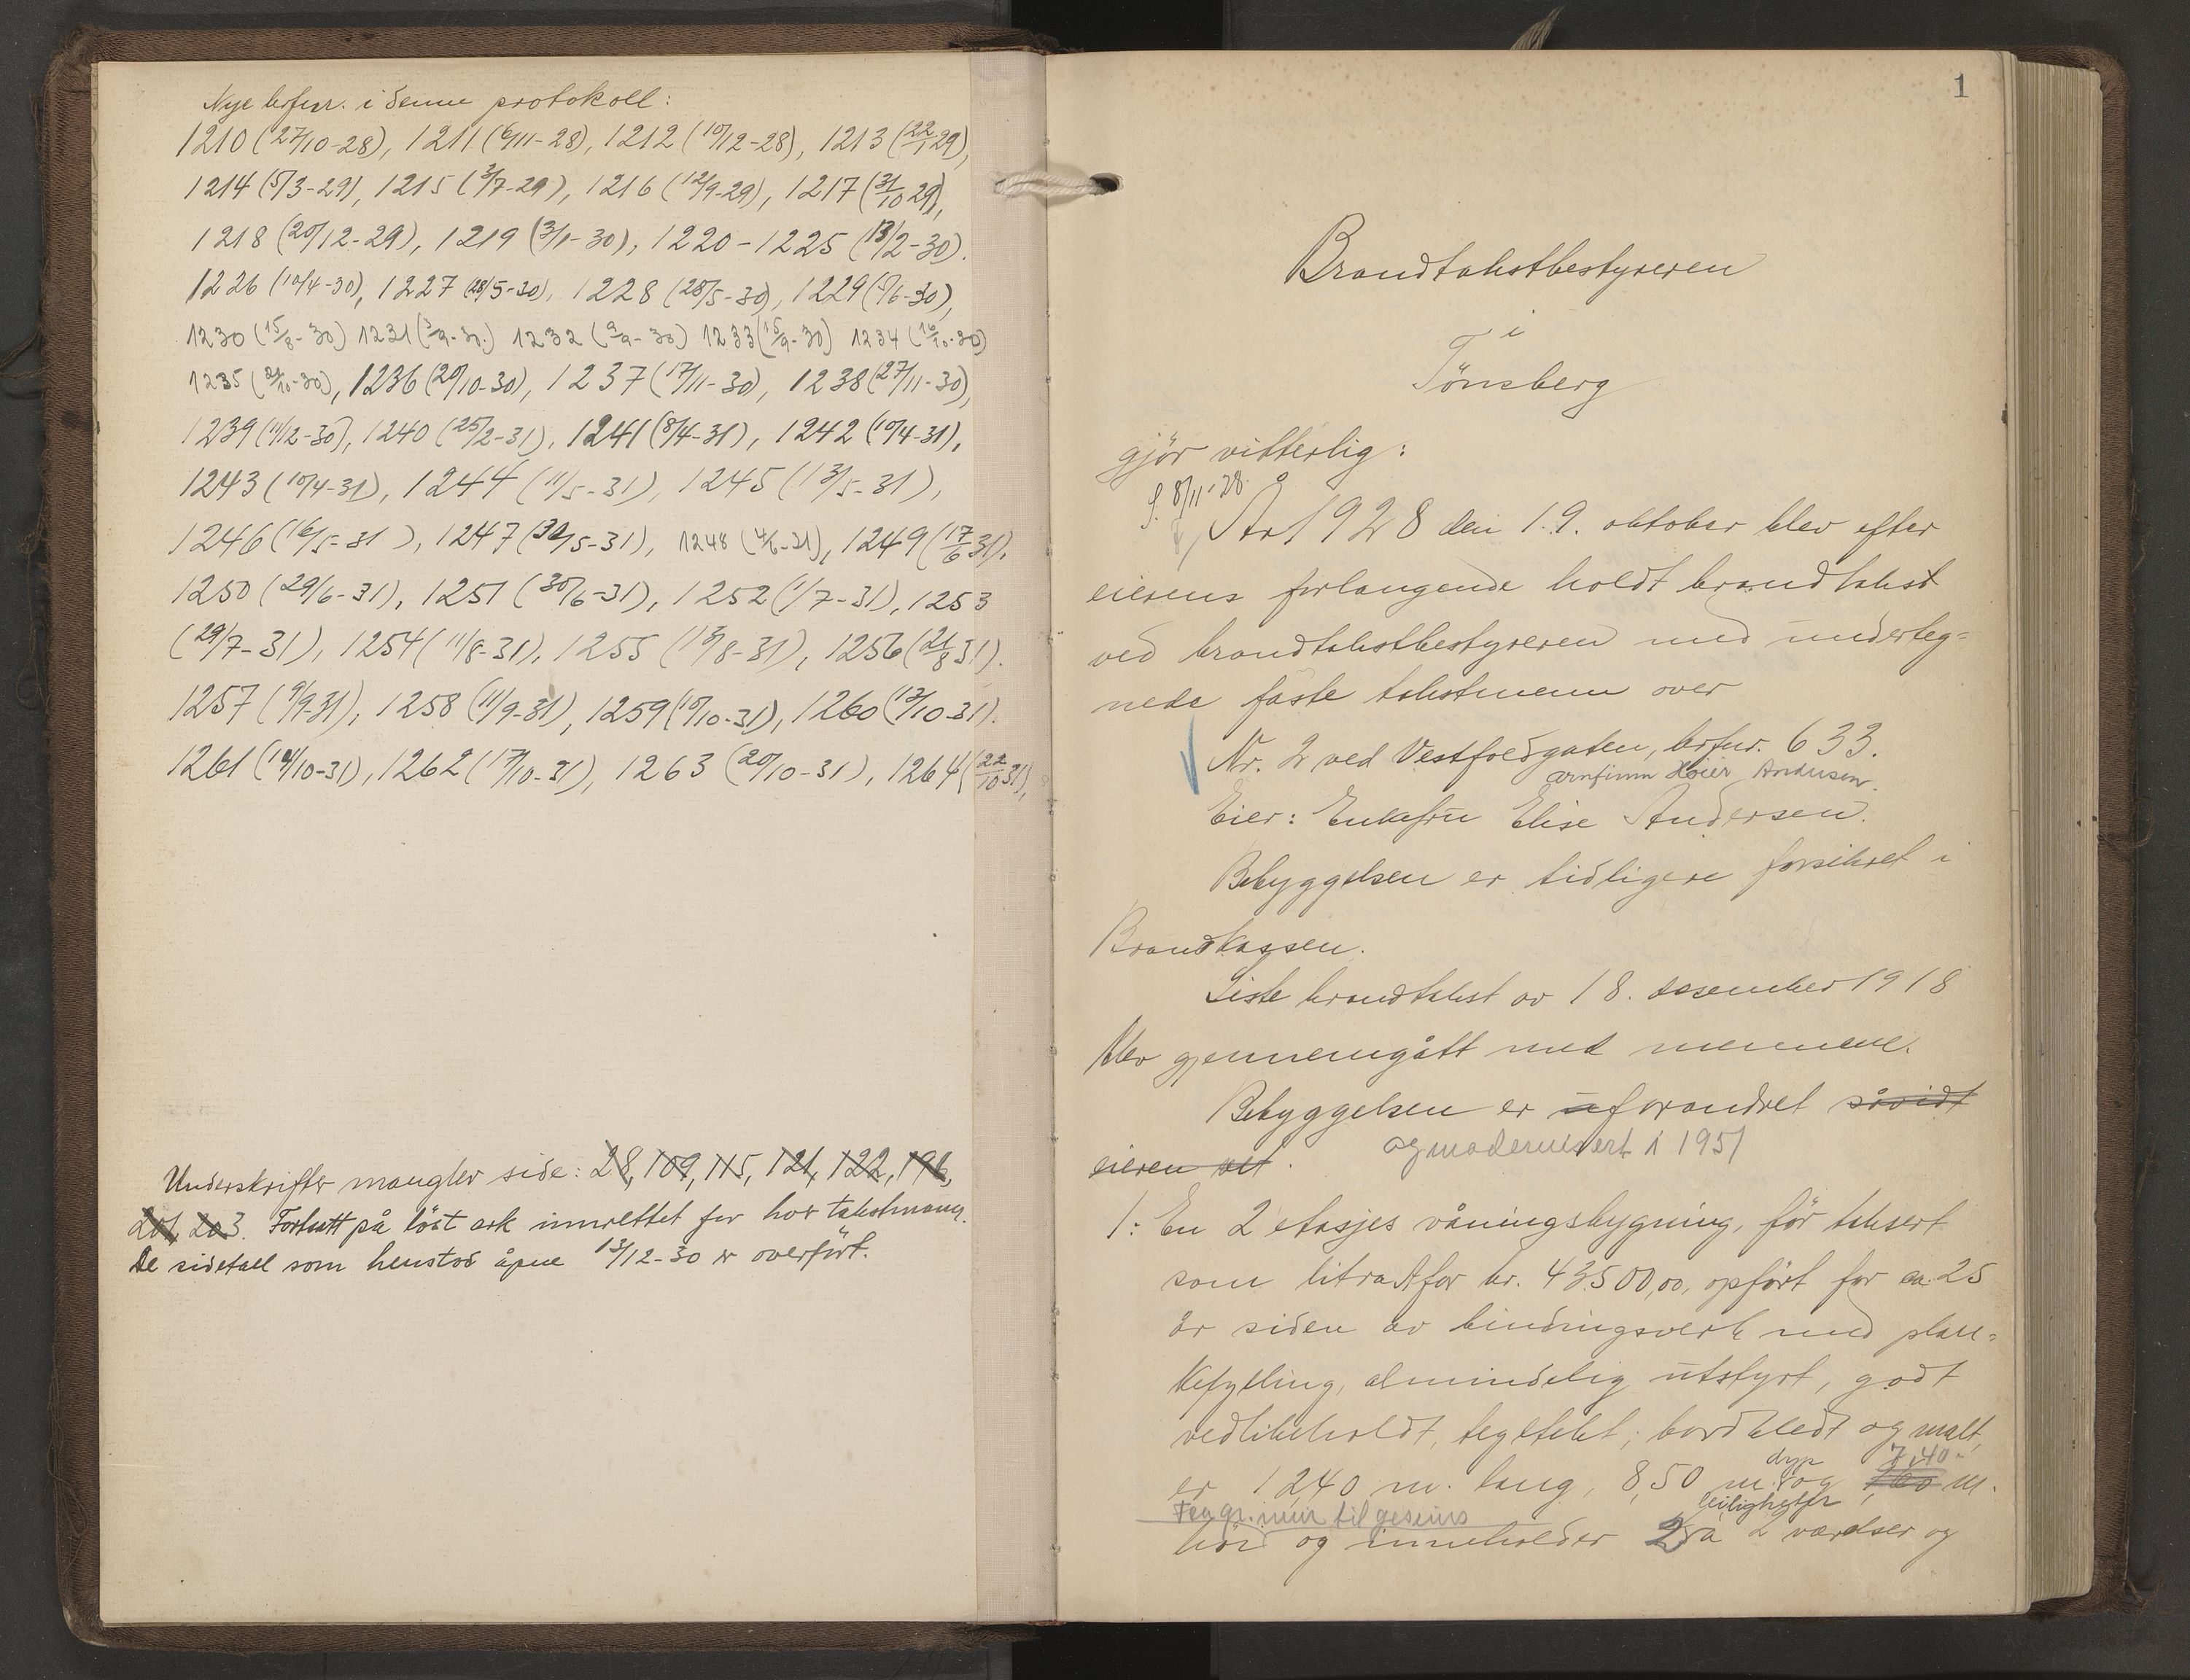 Nye brfnr. i denne protokoll:
1210 (27/10-28), 1211 (6/11-28), 1212 (10/12-28), 1213 (22/1 29),
1214 (5/3-29), 1215 (3/7-29), 1216 (12/9-29), 1217 (31/10 29),
1218 (20/12-29), 1219 (3/1-30), 1220-1225 (13/2-30).
1226 (10/4-30), 1227 (28/5-30), 1228 (28/5-30), 1229 (5/6-30),
1230 (15/8-30) 1231 (3/9-30.) 1232 (9/9-30) 1233 (15/9-30) 1234 (16/10-30)
1235 (21/10-30), 1236 (29/10-30), 1237 (17/11-30), 1238 (27/11-30),
1239 (11/12-30), 1240 (25/2-31), 1241 (8/4-31), 1242 (10/4-31),
1243 (10/4-31), 1244 (11/5-31), 1245 (13/5-31),
1246 (16/5-31), 1247 (30/5-31), 1248 (4/6-31), 1249 (17/6 31).
1250 (29/6-31), 1251 (30/6-31), 1252 (1/7-31), 1253
(29/7-31), 1254 (11/8-31), 1255 (13/8-31), 1256 (21/8 31).
1257 (9/9-31), 1258 (11/9-31), 1259 (10/10-31), 1260 (13/10-31).
1261 (14/10-31), 1262 (17/10-31), 1263 (20/10-31), 1264 (22/10 31),
Underskrifter mangler side: 28, 109, 115, 121, 122, 196,
201, 203. Fortsatt på löst ark innrettet for hver takstmann.
De sidetall som henstod åpne 13/12-30 er overfört.
1
Brandtakstbestyreren
i
Tönsberg
gjör vitterlig:
S. 8/11-28.
År 1928 den 19. oktober blev efter
eierens forlangende holdt brandtakst
ved brandtakstbestyreren med underteg-
nede faste takstmenn over
Nr. 2 ved Vestfoldgaten, brfnr. 633.
Arnfinn Höier Andersen.
Eier: Enkefru Elise Andersen.
Bebyggelsen er tidligere forsikret i
Brandkassen.
Siste brandtakst av 18. desember 1918
blev gjennemgått med mennene.
Bebyggelsen er uforandret såvidt
og modernisert i 1951
eieren vet.
1: En 2 etasjes våningsbygning, för taksert
som litra A for kr. 43500,00, opfört for ca. 25
år siden av bindingsverk med plan-
kefylling, almindelig utstyrt, godt
vedlikeholdt, tegltekt, bordkledt og malt,
dyp 7,40
er 12,40 m. lang, 8,50 m. og m.
Fra gr. mur til gesims leiligheter
höi og inneholder 2 à 2 værelser og